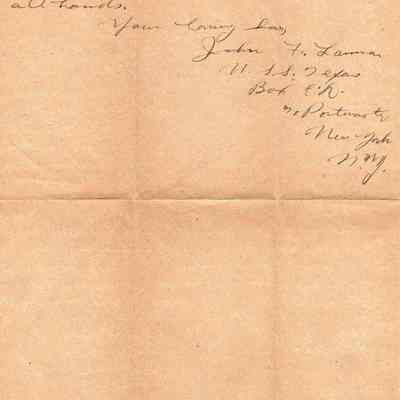 all hands.
Your loving Son
John F. Lannan
U.S.S. Texas
Box E.R.
% Postmaster
New York
N.Y.